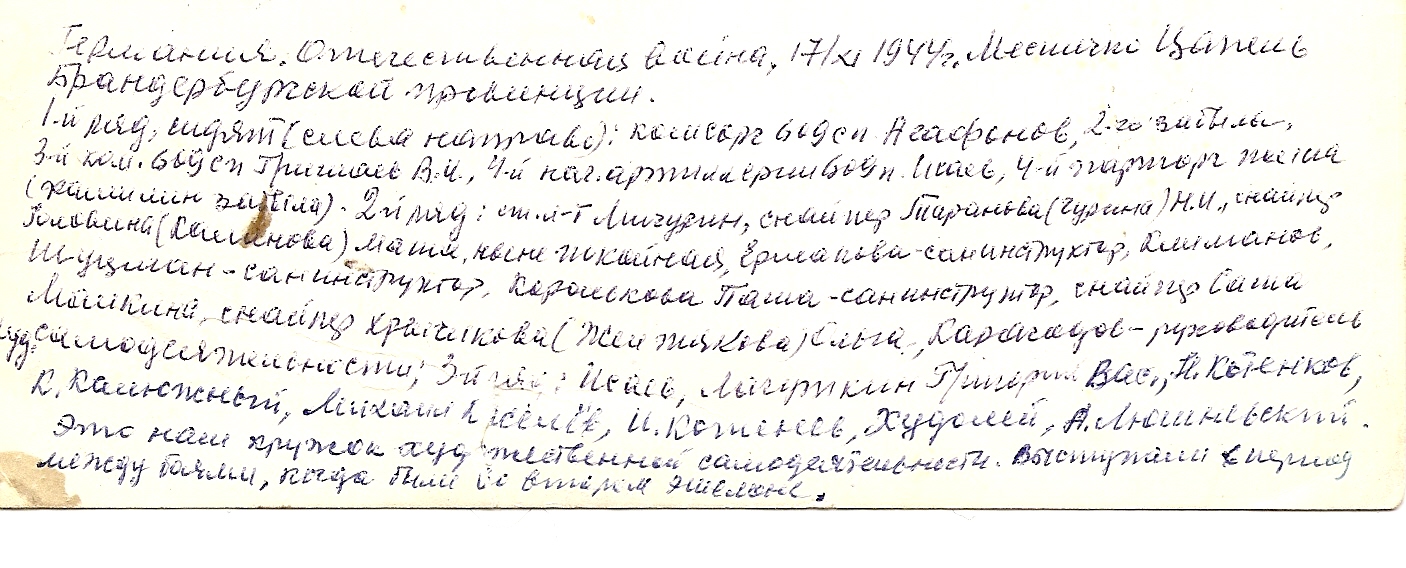 Германия. Отечественная война, 17/XI 1944г. Местечко Цапель
Брандербургской провинции.
1-й ряд, сидят (слева направо): комсорг 609 сп Агафонов, 2-го забыла,
3-й ком. 609 сп Григорьев В.И., 4-й нач. артиллерии 609 п. Исаев, 4-й парторг полка
(фамилии забыла). 2-й ряд: ст. л-т Мичурин, снайпер Таранова (Чурина) Н.И., снайпер
Головина (Калинова) Маша, ныне покойная, Ермакова - санинструктор, Климанов,
Шуцман - санинструктор, Королькова Паша - санинструктор, снайпер Саша
Машкина, снайпер Хрычикова (Желтякова) Ольга, Карагадов - руководитель
худ. самодеятельности; 3-й ряд: Исаев, Лагуткин Григорий Вас., Н. Котенков,
К. Калюжный, Михаил Киселёв, И. Котенев, Худолей, А. Люшневский.
Это наш кружок художественной самодеятельности. Выступали в период
между боями, когда были во втором эшелоне.